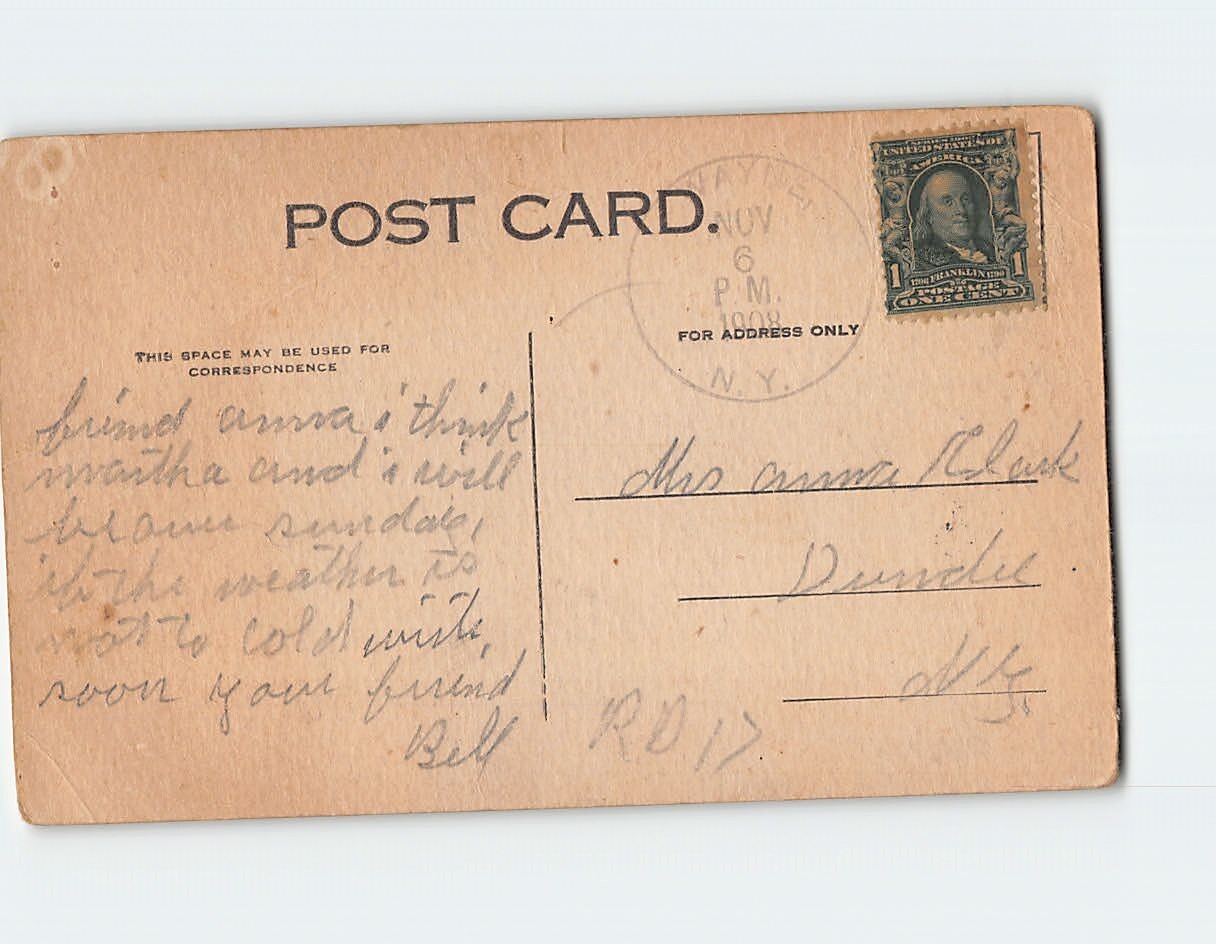 POST CARD.
WAYNE,
NOV
6
P M.
1908
N. Y.
SERIES 1902
UNITED STATES OF
AMERICA
1 1
1706 FRANKLIN 1790
POSTAGE
ONE CENT
THIS SPACE MAY BE USED FOR
CORRESPONDENCE
FOR ADDRESS ONLY
friend anna i think
martha and i will
be over sunday
if the weather is
not to cold write
soon your friend
Bell
Mrs anna Clark
Dundee
N Y.
RD 17